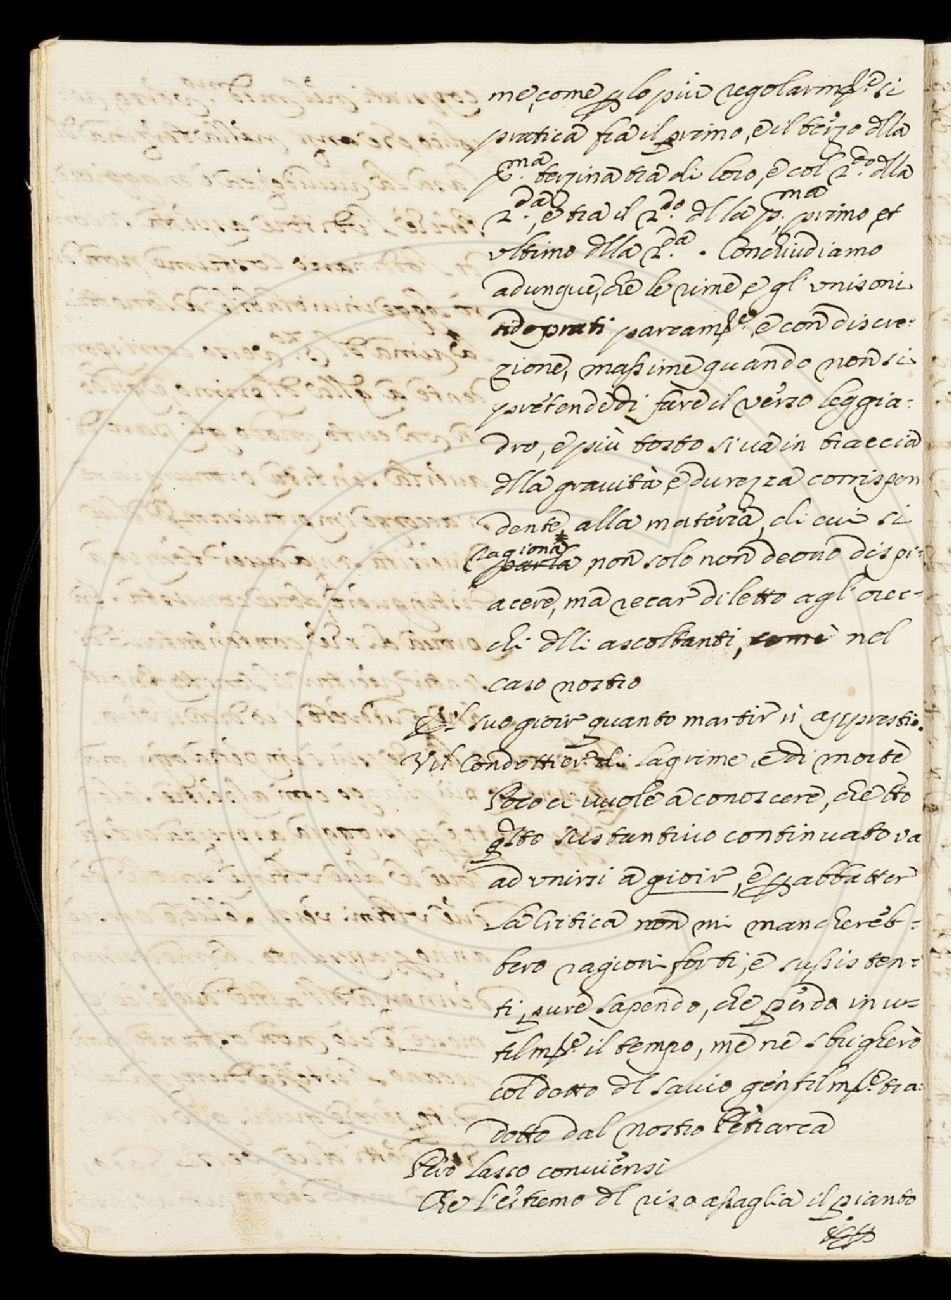 me, come p lo più regolarmte si
pratica fra il primo, e il terzo dlla
pma terzina tra di loro, e col 2do dlla
2da, e tra il 2do dlla pma, primo et
ultimo dlla 2a. Conchiudiamo
adunque, che le rime, e gl' unisoni
adoprati parcamte, e con discre-
zione, massime quando non si
pretende di fare il verso leggia-
dro, e più tosto si va in traccia
dlla gravità, e durezza corrispon
dente, alla materia, di cui si
ragiona
parla non solo non devono dispi-
acere, ma recar diletto agl' orec-
chi dlli ascoltanti, come nel
caso nostro
Al suo gioir quanto martir s' appresti.
Vil Condottier di lagrime, e di morte
Poco ci vuole a conoscere, che tto
qsto sustantivo continuato va
ad unirsi a gioir, e p abbatter
la Critica non mi manchereb-
bero ragioni forti, e sussisten-
ti, pure sapendo, che perdo inu-
tilmte il tempo, me ne sbrigherò
col dotto dl savio gentilmte tra-
dotto dal nostro Petrarca
Però lasso conviensi
Che l'estremo dl riso assaglia il pianto